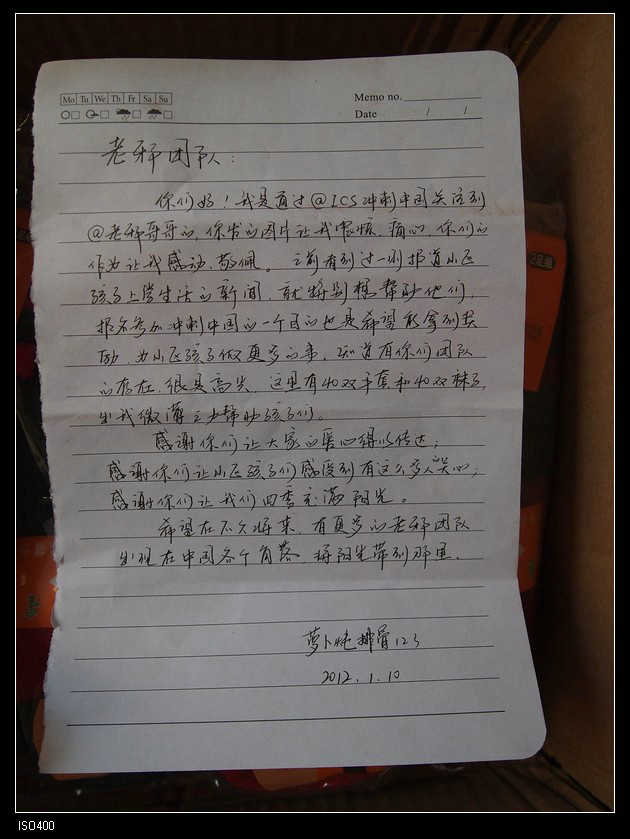 Mo Tu We Th Fr Sa Su
Memo no.
Date / /
老邪团队：
你们好！我是通过@ICS冲刺中国关注到
@老邪哥哥的，你发的图片让我震撼，痛心，你们的
作为让我感动、敬佩。之前有到过一则报道山区
孩子上学生活的新闻，就特别想帮助他们，
报名参加冲刺中国的一个目的也是希望能拿到奖
励，为山区孩子做更多的事，知道有你们团队
的存在，很是高兴，这里有40双手套和40双袜子，
出我微薄之力帮助孩子们。
感谢你们让大家的爱心得以传达；
感谢你们让山区孩子们感受到有这么多人关心；
感谢你们让我们四季充满阳光。
希望在不久将来，有更多的老邪团队
出现在中国各个角落，将阳光带到那里。
萝卜炖排骨123
2012.1.10
ISO400